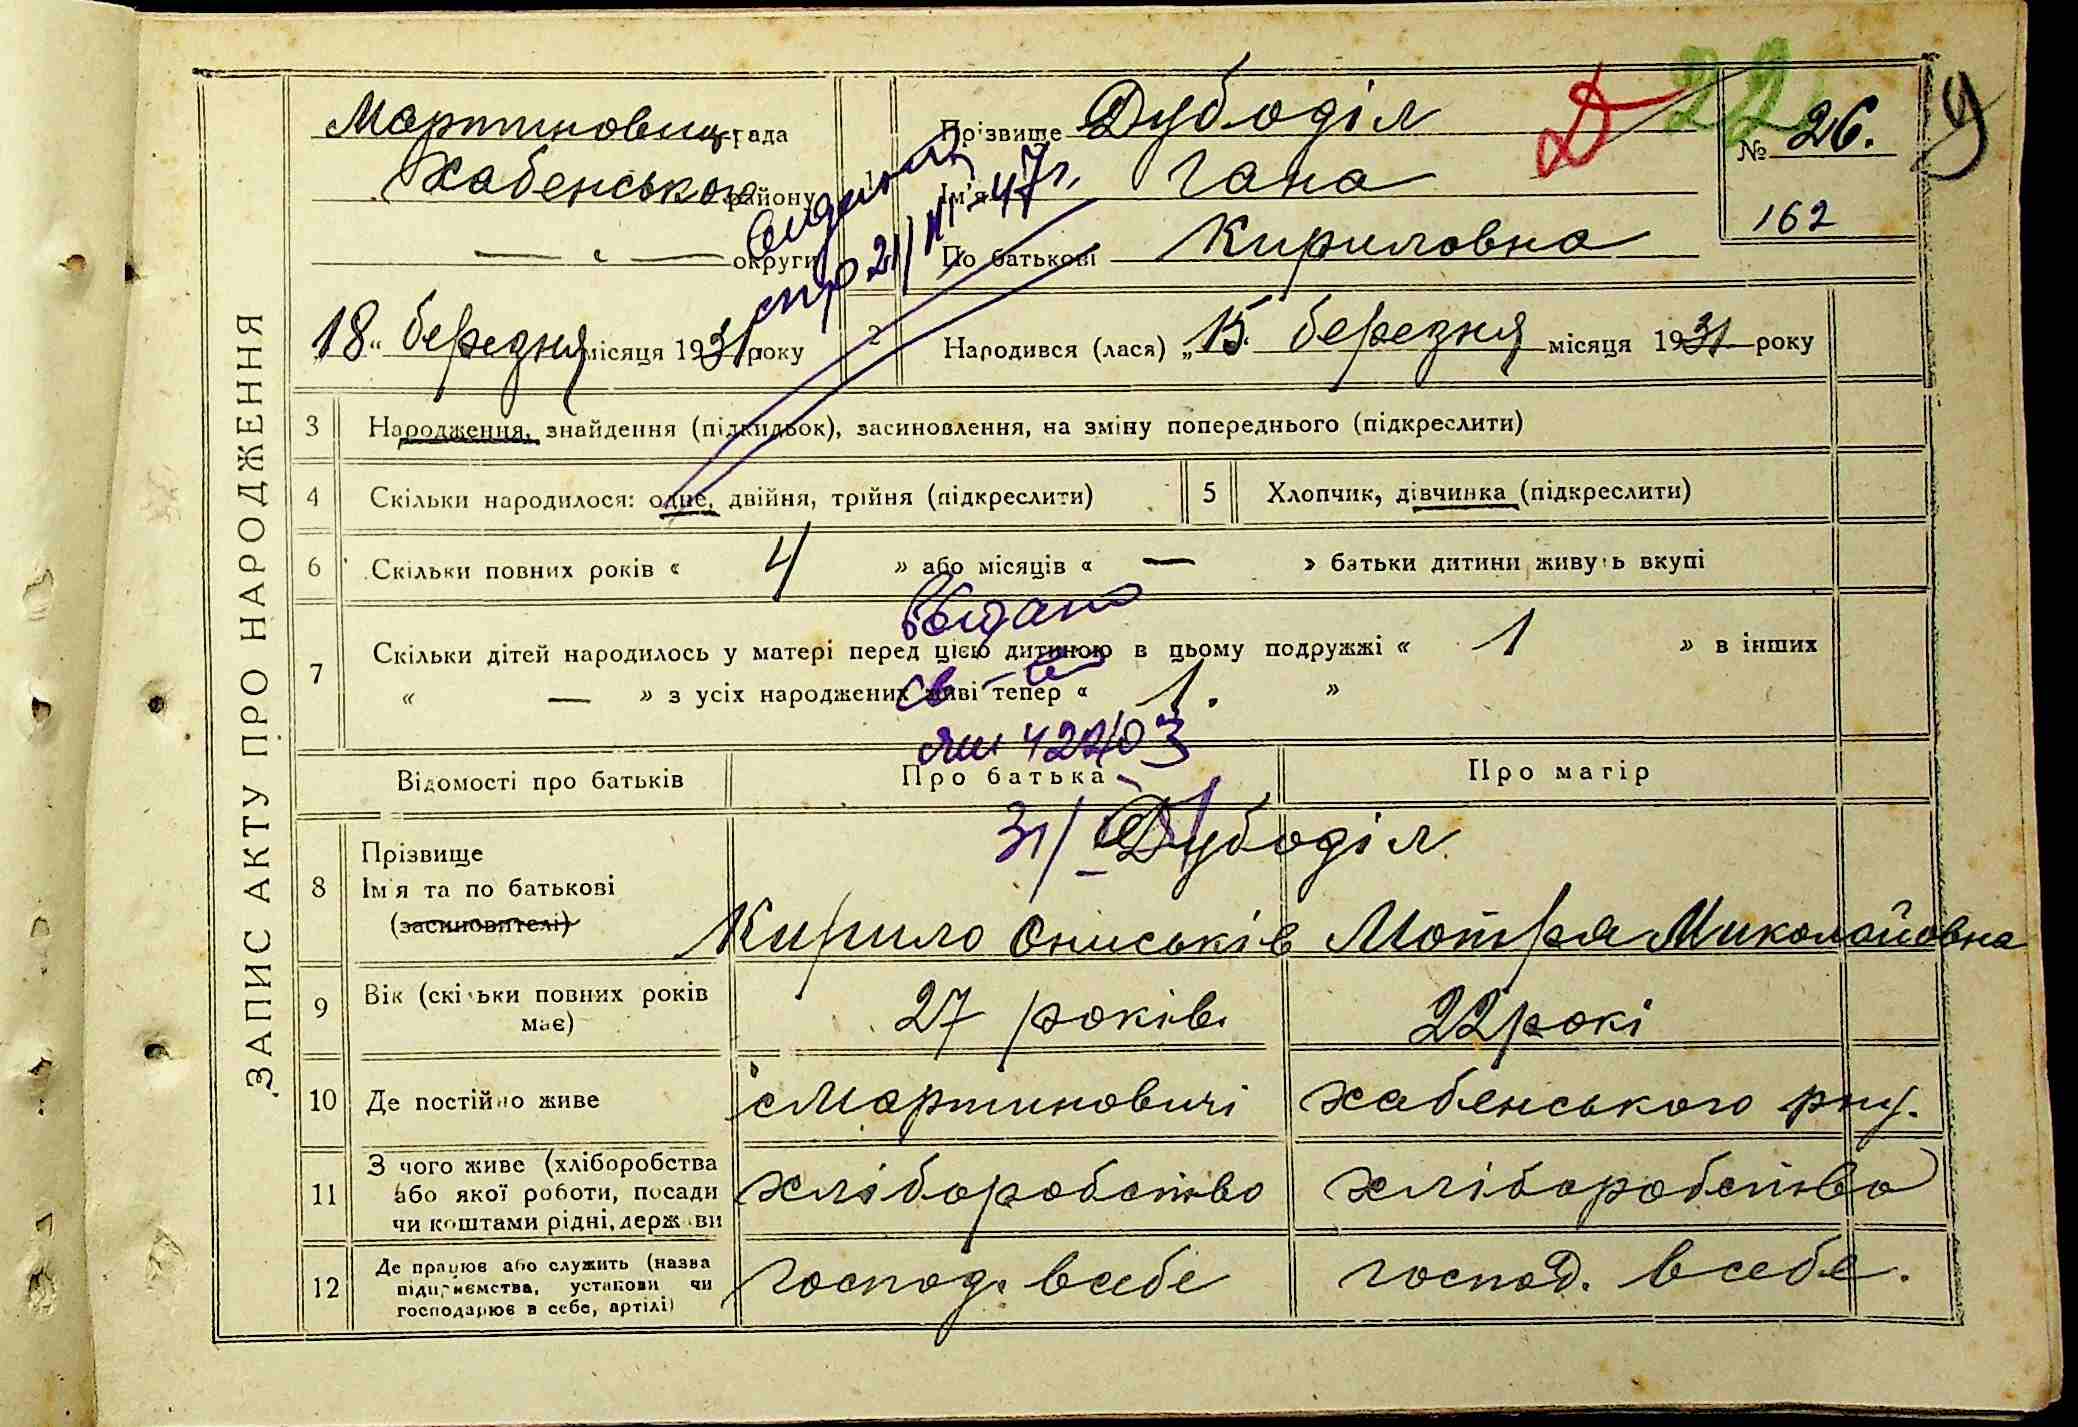 ЗАПИС АКТУ ПРО НАРОДЖЕННЯ
Мартиновиц. рада
Хабенського району
— „ — округи
18 „ березня місяця 1931 року
Прізвище Дубоділ
Ім'я Гана
По батькові Кириловна
№ 26.
162
Д
22
2 Народився (лася) „ 15. березня місяця 1931 року
3 Народження, знайдення (підкидьок), засиновлення, на зміну попереднього (підкреслити)
4 Скільки народилося: одне, двійня, трійня (підкреслити)
5 Хлопчик, дівчинка (підкреслити)
6 Скільки повних років « 4 » або місяців « — » батьки дитини живуть вкупі
7 Скільки дітей народилось у матері перед цією дитиною в цьому подружжі « 1 » в інших
« — » з усіх народжених живі тепер « 1. »
Выдано
св-во
Відомості про батьків
Про батька
Про матір
8 Прізвище
Ім'я та по батькові
(засиновителі)
Дубоділ
Кирило Ониськів Мотря Миколайовна
9 Вік (скільки повних років має)
27 років.
22 рокі
10 Де постійно живе
с Мартиновичі
хабенського рну.
11 З чого живе (хліборобства
або якої роботи, посади
чи коштами рідні, держави
хліборобство
хліборобство
12 Де працює або служить (назва
підприємства, установи чи
господарює в себе, артілі)
господ. в себе
господ. в себе.